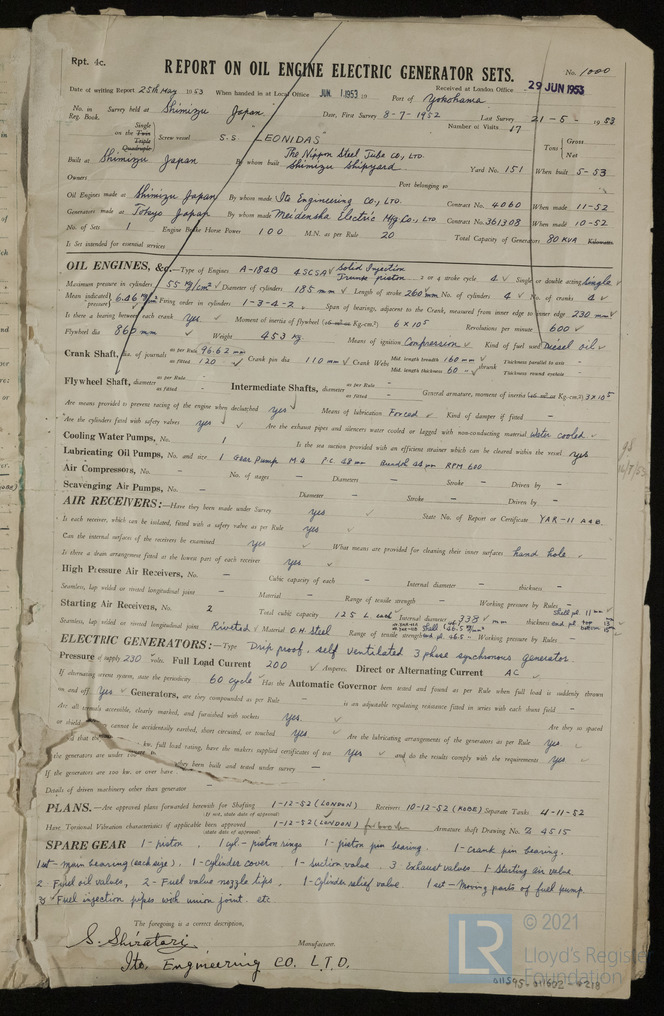 Rpt. 4c.
REPORT ON OIL ENGINE ELECTRIC GENERATOR SETS.
No. 1000
Received at London Office 29 JUN 1953
Date of writing Report 25th May 1953 When handed in at Local Office JUN 1 1953 19 Port of Yokohama
No. in Reg. Book. Survey held at Shimizu Japan. Date, First Survey 8-7-1952 Last Survey 21-5-1953
Number of Visits 17
Single
on the Twin
Triple
Quadruple
Screw vessel S.S. LEONIDAS
Tons Gross
Net
Built at Shimizu Japan By whom built The Nippon Steel Tube Co., LTD. Shimizu Shipyard Yard No. 151 When built 5-53
Owners Port belonging to
Oil Engines made at Shimizu Japan By whom made Ito Engineering Co., LTD. Contract No. 4060 When made 11-52
Generators made at Tokyo Japan By whom made Meidensha Electric Mfg Co., LTD Contract No. 361308 When made 10-52
No. of Sets 1 Engine Brake Horse Power 100 M.N. as per Rule 20 Total Capacity of Generators 80 KVA Kilowatts.
Is Set intended for essential services
OIL ENGINES, &c.—Type of Engines A-184B 4SCSA Solid Injection Trunk piston 2 or 4 stroke cycle 4 Single or double acting Single
Maximum pressure in cylinders 55 kg/cm² Diameter of cylinders 185 mm Length of stroke 260 mm No. of cylinders 4 No. of cranks 4
Mean indicated pressure 6.46 Firing order in cylinders 1-3-4-2 Span of bearings, adjacent to the Crank, measured from inner edge to inner edge 230 mm
Is there a bearing between each crank yes Moment of inertia of flywheel (lb-in² or Kg.-cm²) 6 x 10⁵ Revolutions per minute 600
Flywheel dia 860 mm Weight 453 kg Means of ignition Compression Kind of fuel used Diesel oil
Crank Shaft, dia. of journals as per Rule 96.62 mm as fitted 120 Crank pin dia 110 mm Crank Webs Mid. length breadth 160 mm Mid. length thickness 60 shrunk Thickness parallel to axis - Thickness round eyehole -
Flywheel Shaft, diameter as per Rule - as fitted - Intermediate Shafts, diameter as per Rule - as fitted - General armature, moment of inertia (lb-in² or Kg.-cm²) 3 x 10⁵
Are means provided to prevent racing of the engine when declutched yes Means of lubrication Forced Kind of damper if fitted -
Are the cylinders fitted with safety valves yes Are the exhaust pipes and silencers water cooled or lagged with non-conducting material Water cooled
Cooling Water Pumps, No. 1 Is the sea suction provided with an efficient strainer which can be cleared within the vessel yes
Lubricating Oil Pumps, No. and size 1 Gear Pump RPM 600
Air Compressors, No. - No. of stages - Diameters - Stroke - Driven by -
Scavenging Air Pumps, No. - Diameter - Stroke - Driven by -
AIR RECEIVERS:—Have they been made under Survey yes State No. of Report or Certificate YAR-11 A&B.
Is each receiver, which can be isolated, fitted with a safety valve as per Rule yes
Can the internal surfaces of the receivers be examined yes What means are provided for cleaning their inner surfaces hand hole
Is there a drain arrangement fitted at the lowest part of each receiver yes
High Pressure Air Receivers, No. - Cubic capacity of each - Internal diameter - thickness -
Seamless, lap welded or riveted longitudinal joint - Material - Range of tensile strength - Working pressure by Rules -
Starting Air Receivers, No. 2 Total cubic capacity 125 L each Internal diameter 338 mm thickness Shell pl. 11 mm
Seamless, lap welded or riveted longitudinal joint Riveted Material O.H. Steel Range of tensile strength Working pressure by Rules -
ELECTRIC GENERATORS:—Type Drip proof, self ventilated 3 phase synchronous generator.
Pressure of supply 230 volts. Full Load Current 200 Amperes. Direct or Alternating Current AC
If alternating current system, state the periodicity 60 cycle Has the Automatic Governor been tested and found as per Rule when full load is suddenly thrown
on and off Yes Generators, are they compounded as per Rule - is an adjustable regulating resistance fitted in series with each shunt field -
Are all terminals accessible, clearly marked, and furnished with sockets yes. Are they so spaced
or shielded cannot be accidentally earthed, short circuited, or touched yes Are the lubricating arrangements of the generators as per Rule yes
kw. full load rating, have the makers supplied certificates of test yes and do the results comply with the requirements yes
the generators are under 100 they been built and tested under survey -
If the generators are 100 kw. or over have
Details of driven machinery other than generator -
PLANS.—Are approved plans forwarded herewith for Shafting 1-12-52 (LONDON) Receivers 10-12-52 (KOBE) Separate Tanks 4-11-52
(If not, state date of approval)
Have Torsional Vibration characteristics if applicable been approved 1-12-52 (LONDON) Armature shaft Drawing No. Z 4515
(state date of approval)
SPARE GEAR 1- piston. 1 cyl- piston rings 1- piston pin bearing. 1- crank pin bearing.
1 set- main bearing (each size). 1- Cylinder cover 1- suction valve 3. Exhaust valves 1- Starting air valve
2. Fuel oil valves, 2- Fuel valve nozzle tips, 1- Cylinder relief valve 1 set- Moving parts of fuel pump.
Fuel injection pipes with union joint. etc
The foregoing is a correct description,
S. Shiratori Manufacturer.
Ito. Engineering CO. L.T.D.
LR
© 2021
Lloyd's Register
Foundation
011595-011602-0218